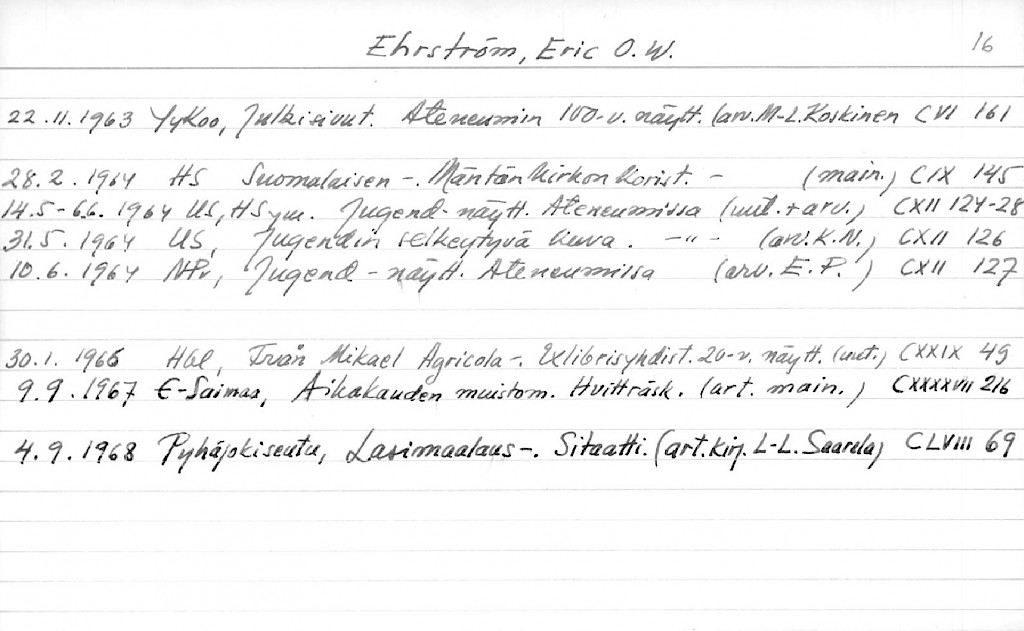 Ehrström, Eric O.W. 16
22.11.1963 YyKoo, Julkisivut. Ateneumin 100-v. näytt. (arv. M-L. Koskinen CVI 161
28.2.1964 HS Suomalaisen -. Mäntän kirkon korist. - (main.) CIX 145
14.5-6.6.1964 US, HS ym. Jugend-näytt. Ateneumissa (uut.+arv.) CXII 124-28
31.5.1964 US, Jugendin selkeytyvä kuva. -"- (arv. K.N.) CXII 126
10.6.1964 NPr, Jugend-näytt. Ateneumissa (arv. E.P.) CXII 127
30.1.1966 Hbl, Från Mikael Agricola -. Exlibrisyhdist. 20-v. näytt. (uut.) CXXIX 49
9.9.1967 E-Saimaa, Aikakauden muistom. Hvitträsk. (art. main.) CXXXXVII 216
4.9.1968 Pyhäjokiseutu, Lasimaalaus -. Sitaatti. (art. kirj. L-L. Saarela) CLVIII 69